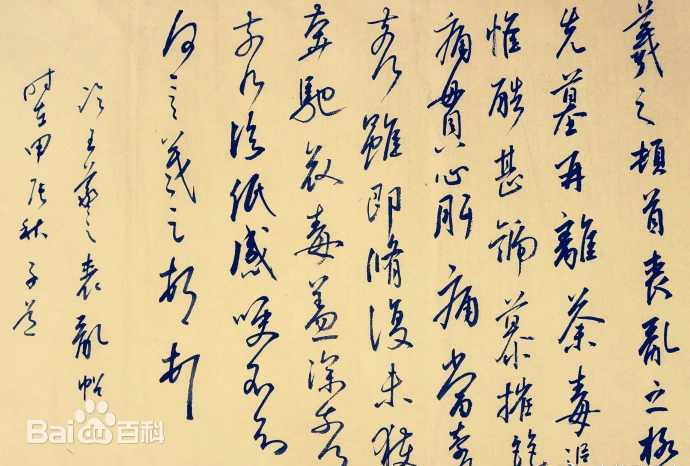 羲之頓首喪亂之極
先墓再離荼毒追
惟酷甚號慕摧絶
痛貫心肝痛當奈
奈何雖即脩復未獲
奔馳哀毒益深奈何
奈何臨紙感哽不知
何言羲之頓首
臨王羲之喪亂帖
时在甲辰秋子
Baidu百科